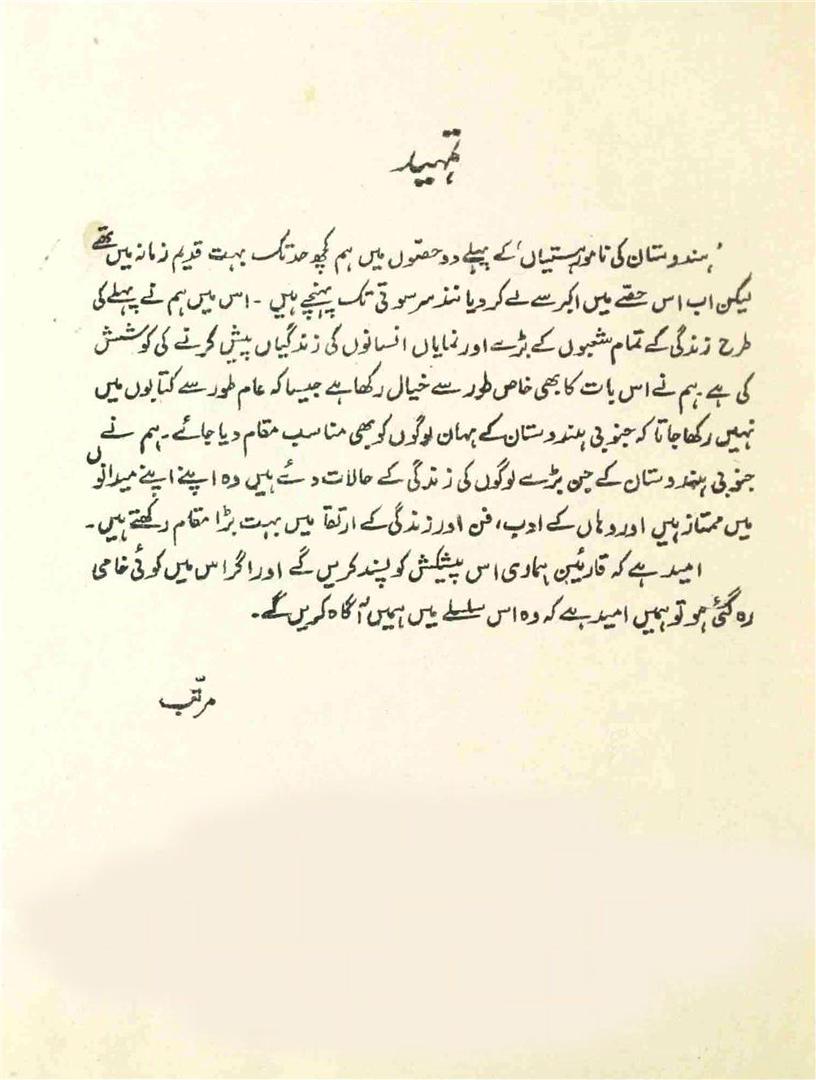 تمہید
'ہندوستان کی نامور ہستیاں' کے پہلے دو حصّوں میں ہم کچھ حد تک بہت قدیم زمانہ میں تھے
لیکن اب اس حصّے میں اکبر سے لے کر دیانند سرسوتی تک پہنچے ہیں ۔ اس میں ہم نے پہلے کی
طرح زندگی کے تمام شعبوں کے بڑے اور نمایاں انسانوں کی زندگیاں پیش کرنے کی کوشش
کی ہے ۔ ہم نے اس بات کا بھی خاص طور سے خیال رکھا ہے جیسا کہ عام طور سے کتابوں میں
نہیں رکھا جاتا کہ جنوبی ہندوستان کے مہان لوگوں کو بھی مناسب مقام دیا جائے ۔ ہم نے
جنوبی ہندوستان کے جن بڑے لوگوں کی زندگی کے حالات دئے ہیں وہ اپنے اپنے میدانوں
میں ممتاز ہیں اور وہاں کے ادب، فن اور زندگی کے ارتقا میں بہت بڑا مقام رکھتے ہیں ۔
امید ہے کہ قارئین ہماری اس پیشکش کو پسند کریں گے اور اگر اس میں کوئی خامی
رہ گئی ہو تو ہمیں امید ہے کہ وہ اس سلسلے میں ہمیں آگاہ کریں گے ۔
مرتّب